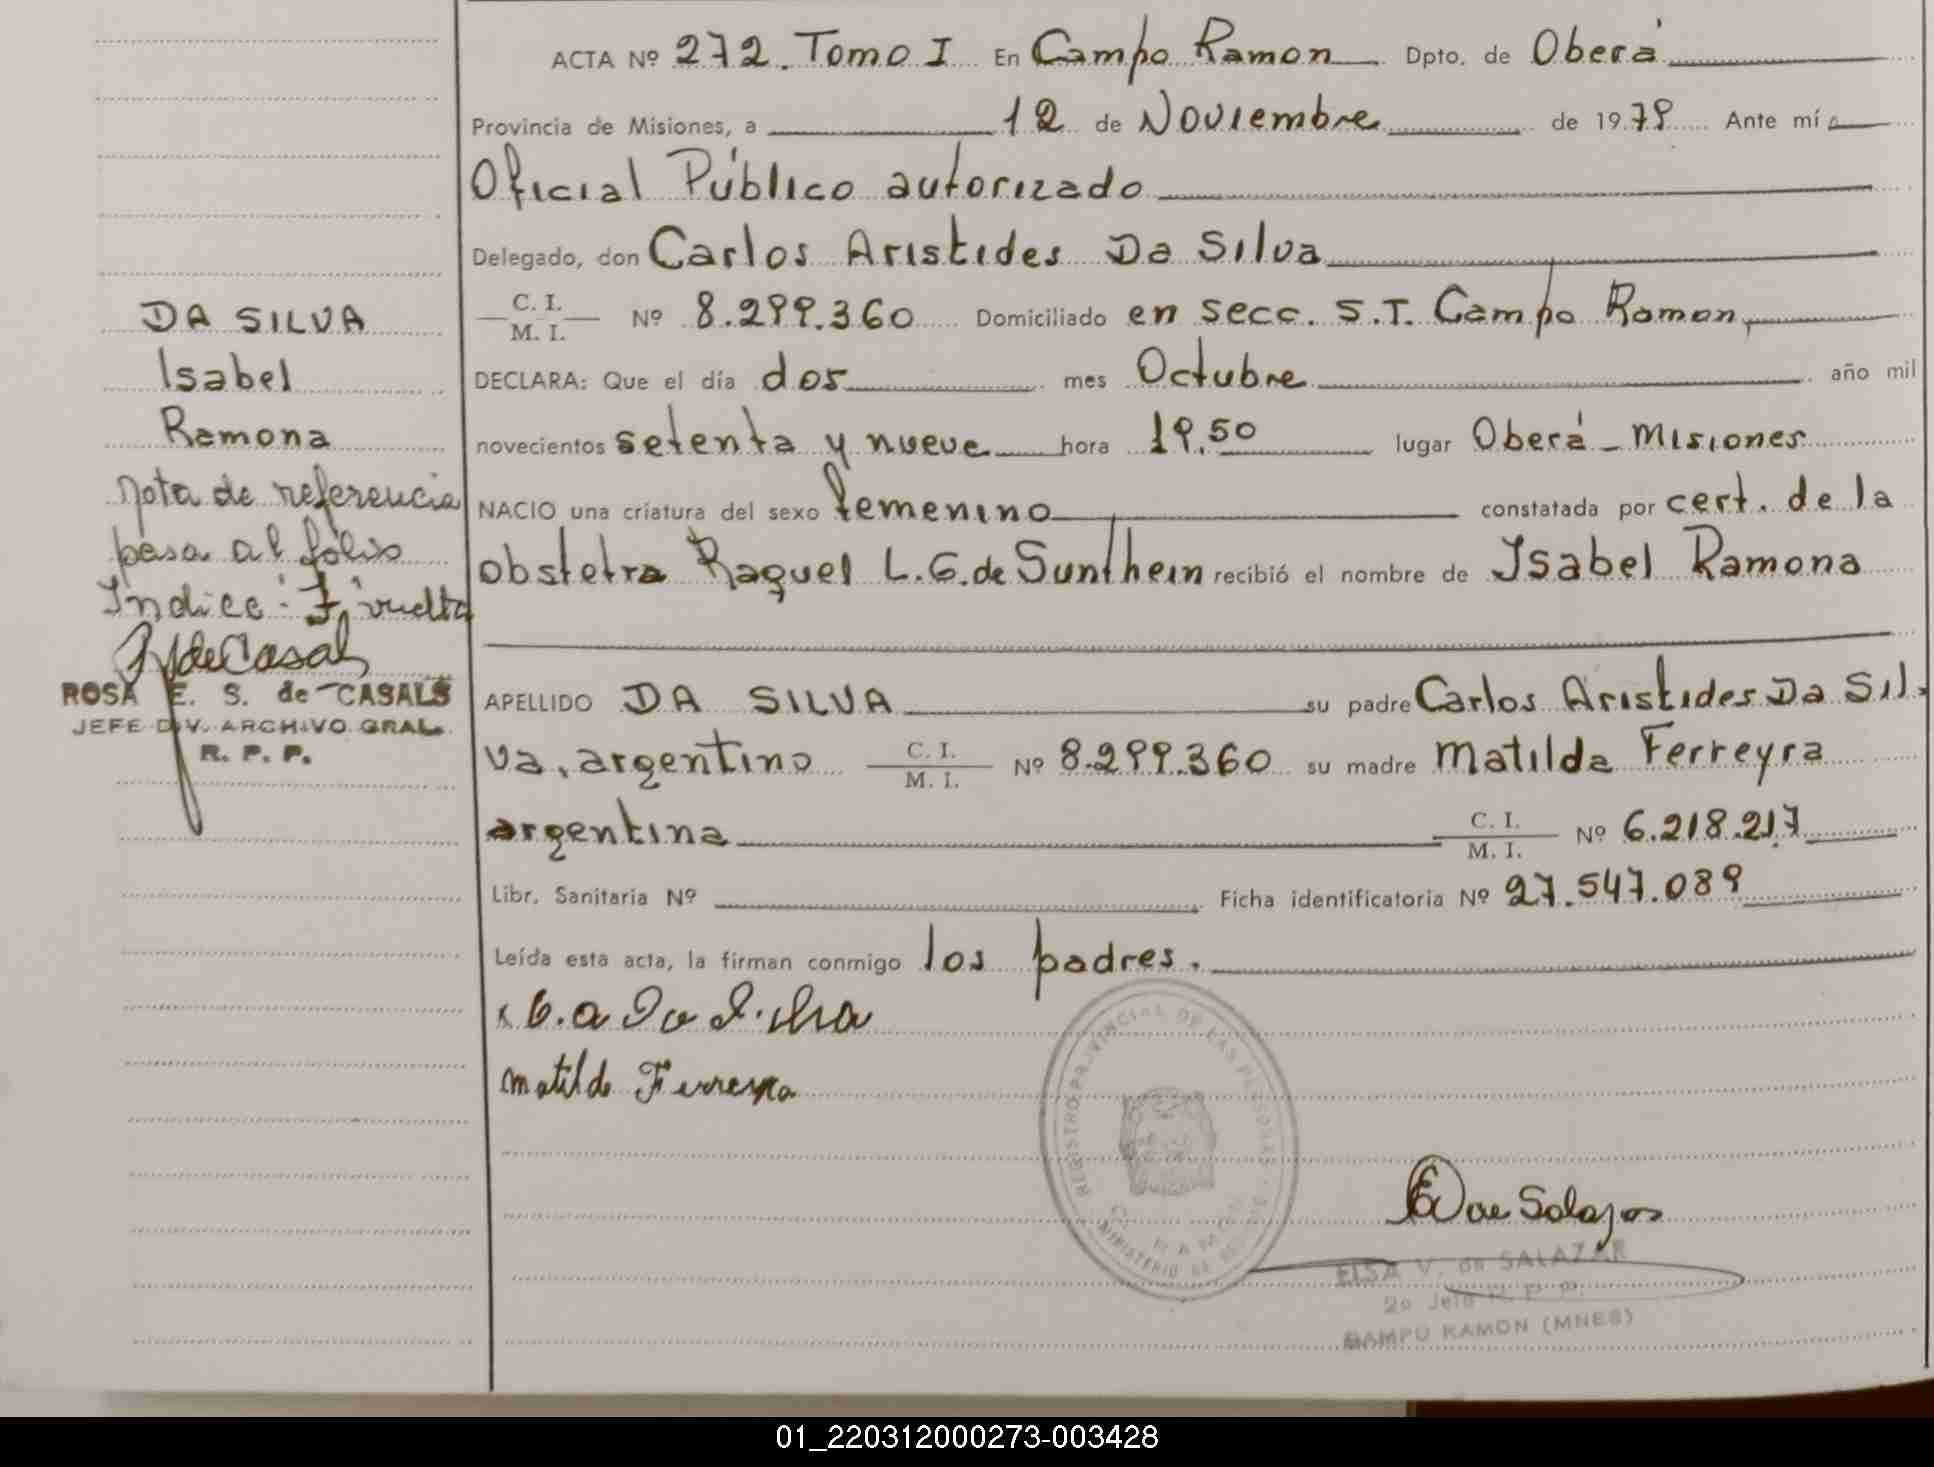 ACTA Nº 272. Tomo I En Campo Ramon Dpto. de Oberá
Provincia de Misiones, a 12 de Noviembre de 1979 Ante mí
Oficial Público autorizado
Delegado, don Carlos Aristides Da Silva
C. I.
M. I. Nº 8.299.360 Domiciliado en secc. S.T. Campo Ramon,
DECLARA: Que el día dos mes Octubre año mil
novecientos setenta y nueve hora 19.50 lugar Oberá - Misiones
NACIO una criatura del sexo femenino constatada por cert. de la
obstetra Raquel L.G. de Sunthein recibió el nombre de Isabel Ramona
APELLIDO DA SILVA su padre Carlos Aristides Da Sil-
va, argentino C. I.
M. I. Nº 8.299.360 su madre Matilda Ferreyra
argentina C. I.
M. I. Nº 6.218.217
Libr. Sanitaria Nº Ficha identificatoria Nº 27.547.089
Leída esta acta, la firman conmigo los padres.
x C. a Da Silva
Matilde Ferreyra
DA SILVA
Isabel
Ramona
Nota de referencia
pasa al folio
Indice: I, vuelta
R de Casals
ROSA E. S. de CASALS
JEFE DIV. ARCHIVO GRAL.
R. P. P.
REGISTRO PROVINCIAL DE LAS PERSONAS
MINISTERIO DE
E V de Salazar
ELSA V. de SALAZAR
2º Jefe R. P. P.
CAMPO RAMON (MNES)
01_220312000273-003428